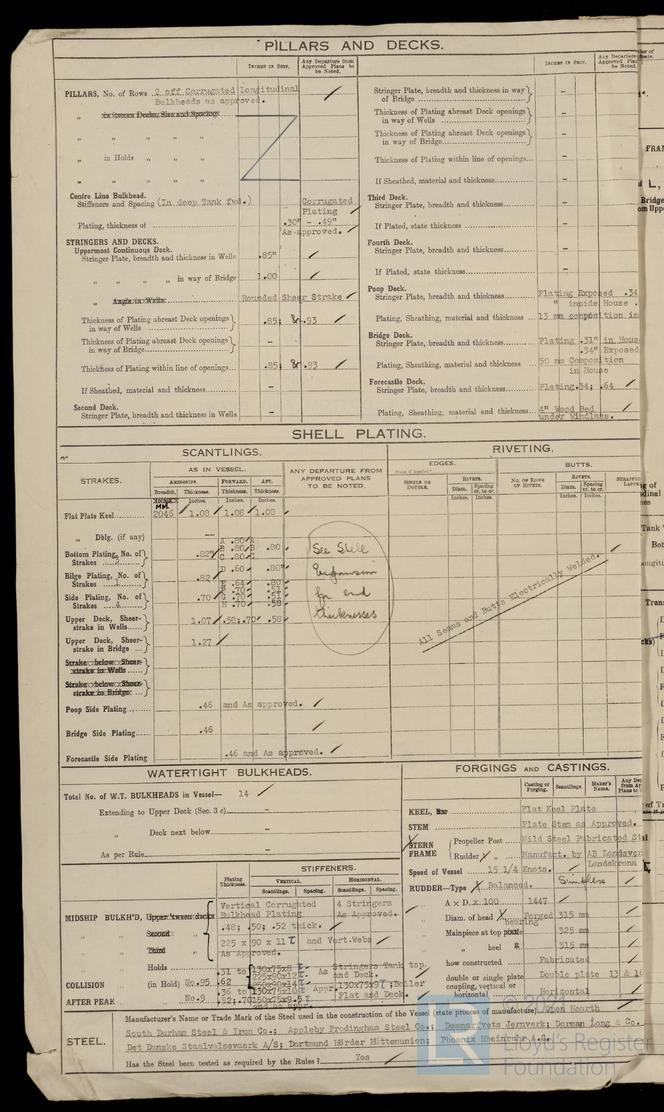 PILLARS AND DECKS.
INCHES IN SHIP.
Any Departure from Approved Plans to be Noted.
PILLARS, No. of Rows 2 off Corrugated Longitudinal
Bulkheads as approved.
„ in tween Decks, Size and Spacing
„ „ „ „
„ in Holds „ „ „
„ „ „ „
Centre Line Bulkhead.
Stiffeners and Spacing (In deep Tank fwd.) Corrugated
Plating
Plating, thickness of .30" - .49"
As approved.
STRINGERS AND DECKS.
Uppermost Continuous Deck.
Stringer Plate, breadth and thickness in Wells .85"
„ „ „ „ in way of Bridge 1.00
„ Angle in Wells Rounded Shear Strake
Thickness of Plating abreast Deck openings in way of Wells .85; & .93
Thickness of Plating abreast Deck openings in way of Bridge -
Thickness of Plating within line of openings .85; & .93
If Sheathed, material and thickness -
Second Deck.
Stringer Plate, breadth and thickness in Wells -
INCHES IN SHIP.
Stringer Plate, breadth and thickness in way of Bridge -
Thickness of Plating abreast Deck openings in way of Wells -
Thickness of Plating abreast Deck openings in way of Bridge -
Thickness of Plating within line of openings -
If Sheathed, material and thickness -
Third Deck.
Stringer Plate, breadth and thickness -
If Plated, state thickness -
Fourth Deck.
Stringer Plate, breadth and thickness -
If Plated, state thickness -
Poop Deck.
Stringer Plate, breadth and thickness Plating Exposed .34
" inside House .
Plating, Sheathing, material and thickness 13 mm composition in
Bridge Deck.
Stringer Plate, breadth and thickness Plating .31" in House
.34" Exposed
Plating, Sheathing, material and thickness 50 mm Composition
in House
Forecastle Deck.
Stringer Plate, breadth and thickness Plating .34; .64
Plating, Sheathing, material and thickness 4" Wood Bed
under Windlass.
SHELL PLATING.
SCANTLINGS.
RIVETING.
STRAKES.
AS IN VESSEL.
AMIDSHIPS. FORWARD. AFT.
Breadth. Thickness. Thickness. Thickness.
Inches. Inches. Inches.
ANY DEPARTURE FROM APPROVED PLANS TO BE NOTED.
EDGES.
SINGLE OR DOUBLE.
RIVETS.
Diam. Spacing cr. to cr.
Inches. Inches.
BUTTS.
NO. OF ROWS OF RIVETS.
RIVETS.
Diam. Spacing cr. to cr.
Inches. Inches.
Flat Plate Keel 2046 1.08 1.08 1.08
„ Dblg. (if any) --
Bottom Plating, No. of Strakes .82" A .80 B .80 C .80 .80
Bilge Plating, No. of Strakes .82 D .60 .80"
Side Plating, No. of Strakes .70 H .70 .58
Upper Deck, Sheer-strake in Wells 1.07 .58;.70 .58
Upper Deck, Sheer-strake in Bridge 1.27
Strake below Sheer-strake in Wells
Strake below Sheer-strake in Bridge
Poop Side Plating .46 and As approved.
Bridge Side Plating .46
Forecastle Side Plating .46 and As approved.
See Shell
Expansion
for end
thicknesses
All Seams and Butts Electrically Welded.
WATERTIGHT BULKHEADS.
Total No. of W.T. BULKHEADS in Vessel— 14
Extending to Upper Deck (Sec. 3 c) -
„ Deck next below -
As per Rule -
Plating Thickness.
STIFFENERS.
VERTICAL. HORIZONTAL.
Scantlings. Spacing. Scantlings. Spacing.
MIDSHIP BULKH'D, Upper tween decks
„ „ Second „
„ „ Third „
Vertical Corrugated Bulkhead Plating
.48; .50; .52 thick.
225 x 90 x 11 and Vert.Webs
As approved.
4 Stringers
As Approved.
„ „ Holds
COLLISION „ (in Hold) No.95
AFTER PEAK „ „ No.9
Stringers Tank top.
and Deck.
Flat and Deck.
FORGINGS AND CASTINGS.
Casting or Forging. Scantlings. Maker's Name.
KEEL, Bar Flat Keel Plate
STEM Plate Stem as Approved.
STERN FRAME
Propeller Post Mild Steel Fabricated
Rudder „ Manufact. by AB Landsver
Landskrona
Speed of Vessel 15 1/4 Knots.
RUDDER—Type Balanced. Simplex
„ A x D. x 100 1447
„ Diam. of head Forged 315 mm
„ Mainpiece at top 325 mm
„ „ heel 315 mm
„ how constructed Fabricated
„ double or single plate Double plate 13 & 1
„ coupling, vertical or horizontal Horizontal
STEEL.
Manufacturer's Name or Trade Mark of the Steel used in the construction of the Vessel (state process of manufacture) Open Hearth
South Durham Steel & Iron Co.; Appleby Frodingham Steel Co.; Domnarvets Jernverk; Dorman Long & Co.
Det Danske Staalvalseværk A/S; Dortmund Hörder Hüttenunion; Phoenix Rheinrohr A.G.
Has the Steel been tested as required by the Rules? Yes
Lloyd's Register
Foundation